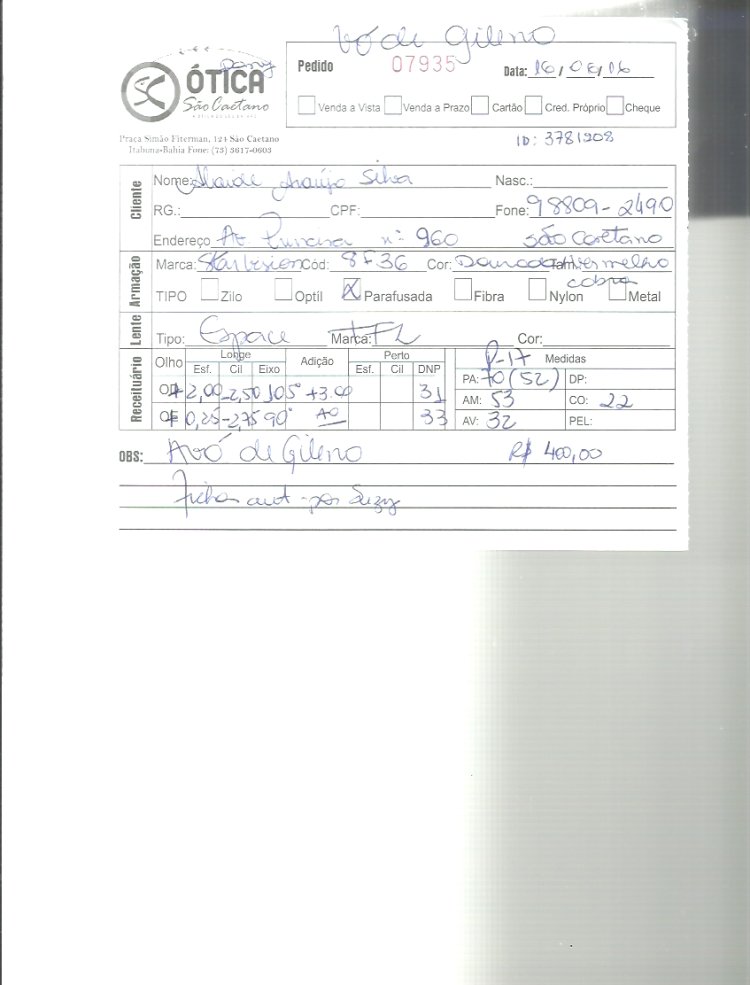 Vó de Gileno
ÓTICA
São Caetano
Praça Simão Fiterman, 124 São Caetano
Itabuna-Bahia Fone: (73) 3617-0603
Pedido 07935 Data: 16/08/16
Venda a Vista Venda a Prazo Cartão Cred. Próprio Cheque
ID: 3781908
Cliente
Nome: Araújo Silva Nasc.:
RG.: CPF: Fone: 98809-2490
Endereço nº 960 São Caetano
Armação
Marca: Cód: 8F36 Cor: Dourado vermelho
cobra
TIPO Zilo Optíl X Parafusada Fibra Nylon Metal
Lente
Tipo: Espace Marca: FL Cor:
Receituário
Olho Longe Adição Perto P-17 Medidas
Esf. Cil Eixo Esf. Cil DNP
PA: 70 (52) DP:
OD +2,00 -2,50 105° +3.00 31
AM: 53 CO: 22
OE 0,25 -2,75 90° AO 33
AV: 32 PEL:
OBS: Avó de Gileno R$ 400,00
Ficha aut. por Suzy